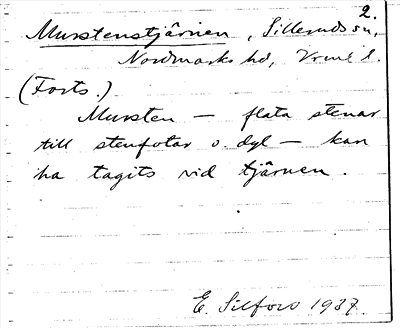 2.
Murstenstjärnen, Sillerud sn,
Nordmarks hd, Vrml l.
(Forts.)
Mursten — flata stenar
till stenfotar o. dyl — kan
ha tagits vid tjärnen.
E. Silfors 1937.